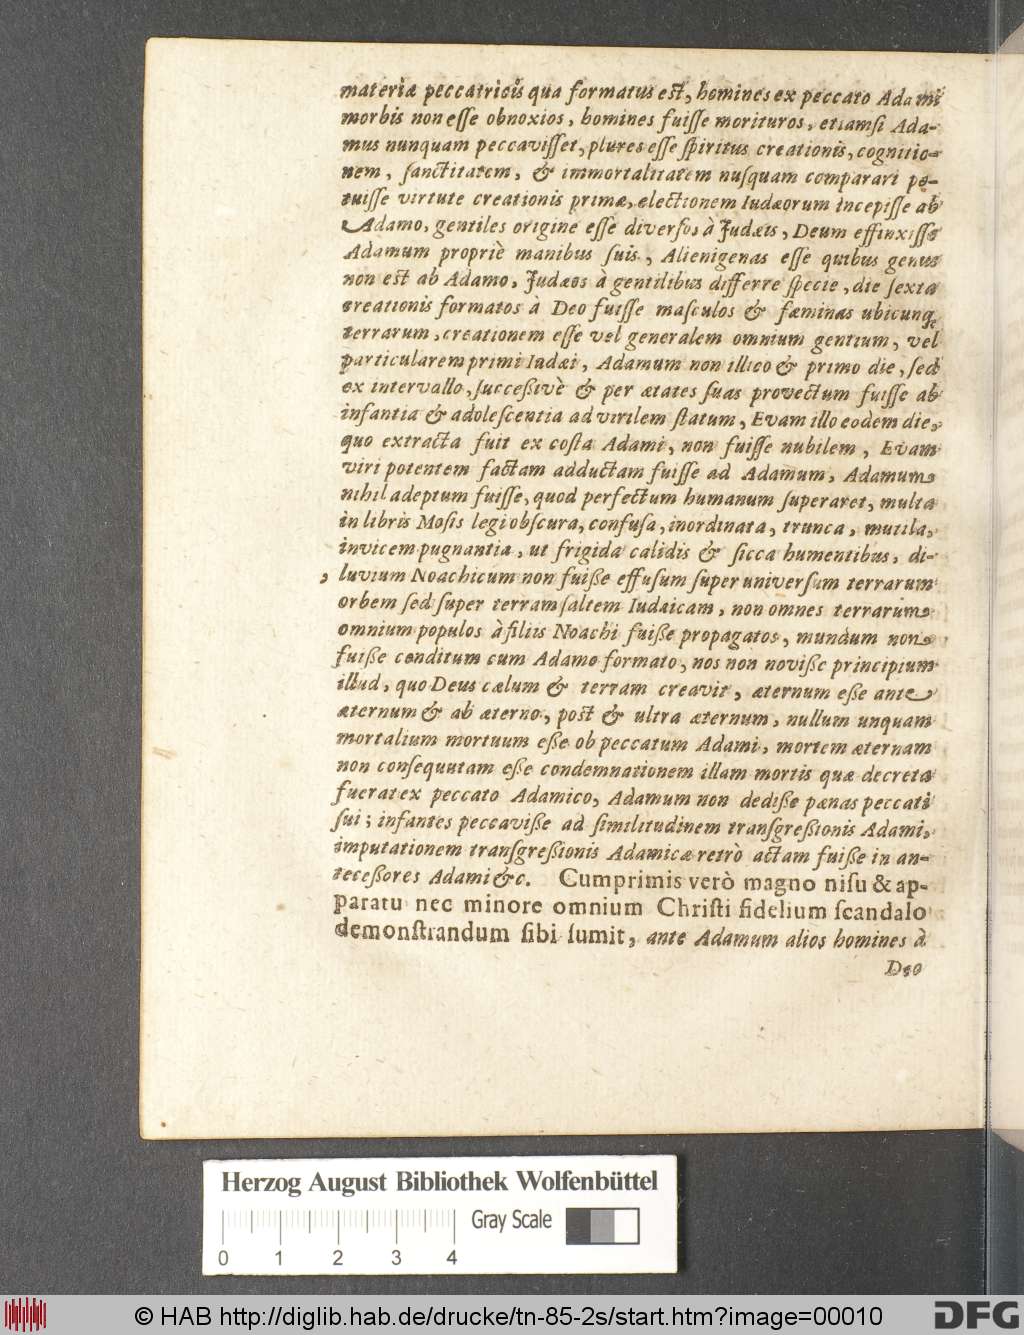 materiæ peccatricis qua formatus est, homines ex peccato Adami
morbis non esse obnoxios, homines fuisse morituros, etiamsi Ada-
mus nunquam peccavisset, plures esse spiritus creationis, cognitio-
nem, sanctitatem, & immortalitatem nusquam comparari po-
tuisse virtute creationis primæ, electionem Iudæorum incepisse ab
Adamo, gentiles origine esse diversos à Judæis, Deum effinxisse
Adamum propriè manibus suis, Alienigenas esse quibus genus
non est ab Adamo, Judæos à gentilibus differre specie, die sexta
creationis formatos à Deo fuisse masculos & fæminas ubicunq;
terrarum, creationem esse vel generalem omnium gentium, vel
particularem primi Iudæi, Adamum non illico & primo die, sed
ex intervallo, successivè & per ætates suas provectum fuisse ab
infantia & adolescentia ad virilem statum, Evam illo eodem die,
quo extracta fuit ex costa Adami, non fuisse nubilem, Evam
viri potentem factam adductam fuisse ad Adamum, Adamum
nihil adeptum fuisse, quod perfectum humanum superaret, multa
in libris Mosis legi obscura, confusa, inordinata, trunca, mutila,
invicem pugnantia, ut frigida calidis & sicca humentibus, di-
luvium Noachicum non fuiße effusum super universum terrarum
orbem sed super terram saltem Iudaicam, non omnes terrarum
omnium populos à filiis Noachi fuiße propagatos, mundum non
fuiße conditum cum Adamo formato, nos non noviße principium
illud, quo Deus cælum & terram creavit, æternum eße ante
æternum & ab æterno, post & ultra æternum, nullum unquam
mortalium mortuum eße ob peccatum Adami, mortem æternam
non consequutam eße condemnationem illam mortis quæ decreta
fuerat ex peccato Adamico, Adamum non dediße pænas peccati
sui; infantes peccaviße ad similitudinem transgreßionis Adami,
imputationem transgreßionis Adamicæ retrò actam fuiße in an-
teceßores Adami &c. Cumprimis verò magno nisu & ap-
paratu nec minore omnium Christi fidelium scandalo
demonstrandum sibi sumit, ante Adamum alios homines à
Deo
Herzog August Bibliothek Wolfenbüttel
Gray Scale
0 1 2 3 4
© HAB http://diglib.hab.de/drucke/tn-85-2s/start.htm?image=00010
DFG